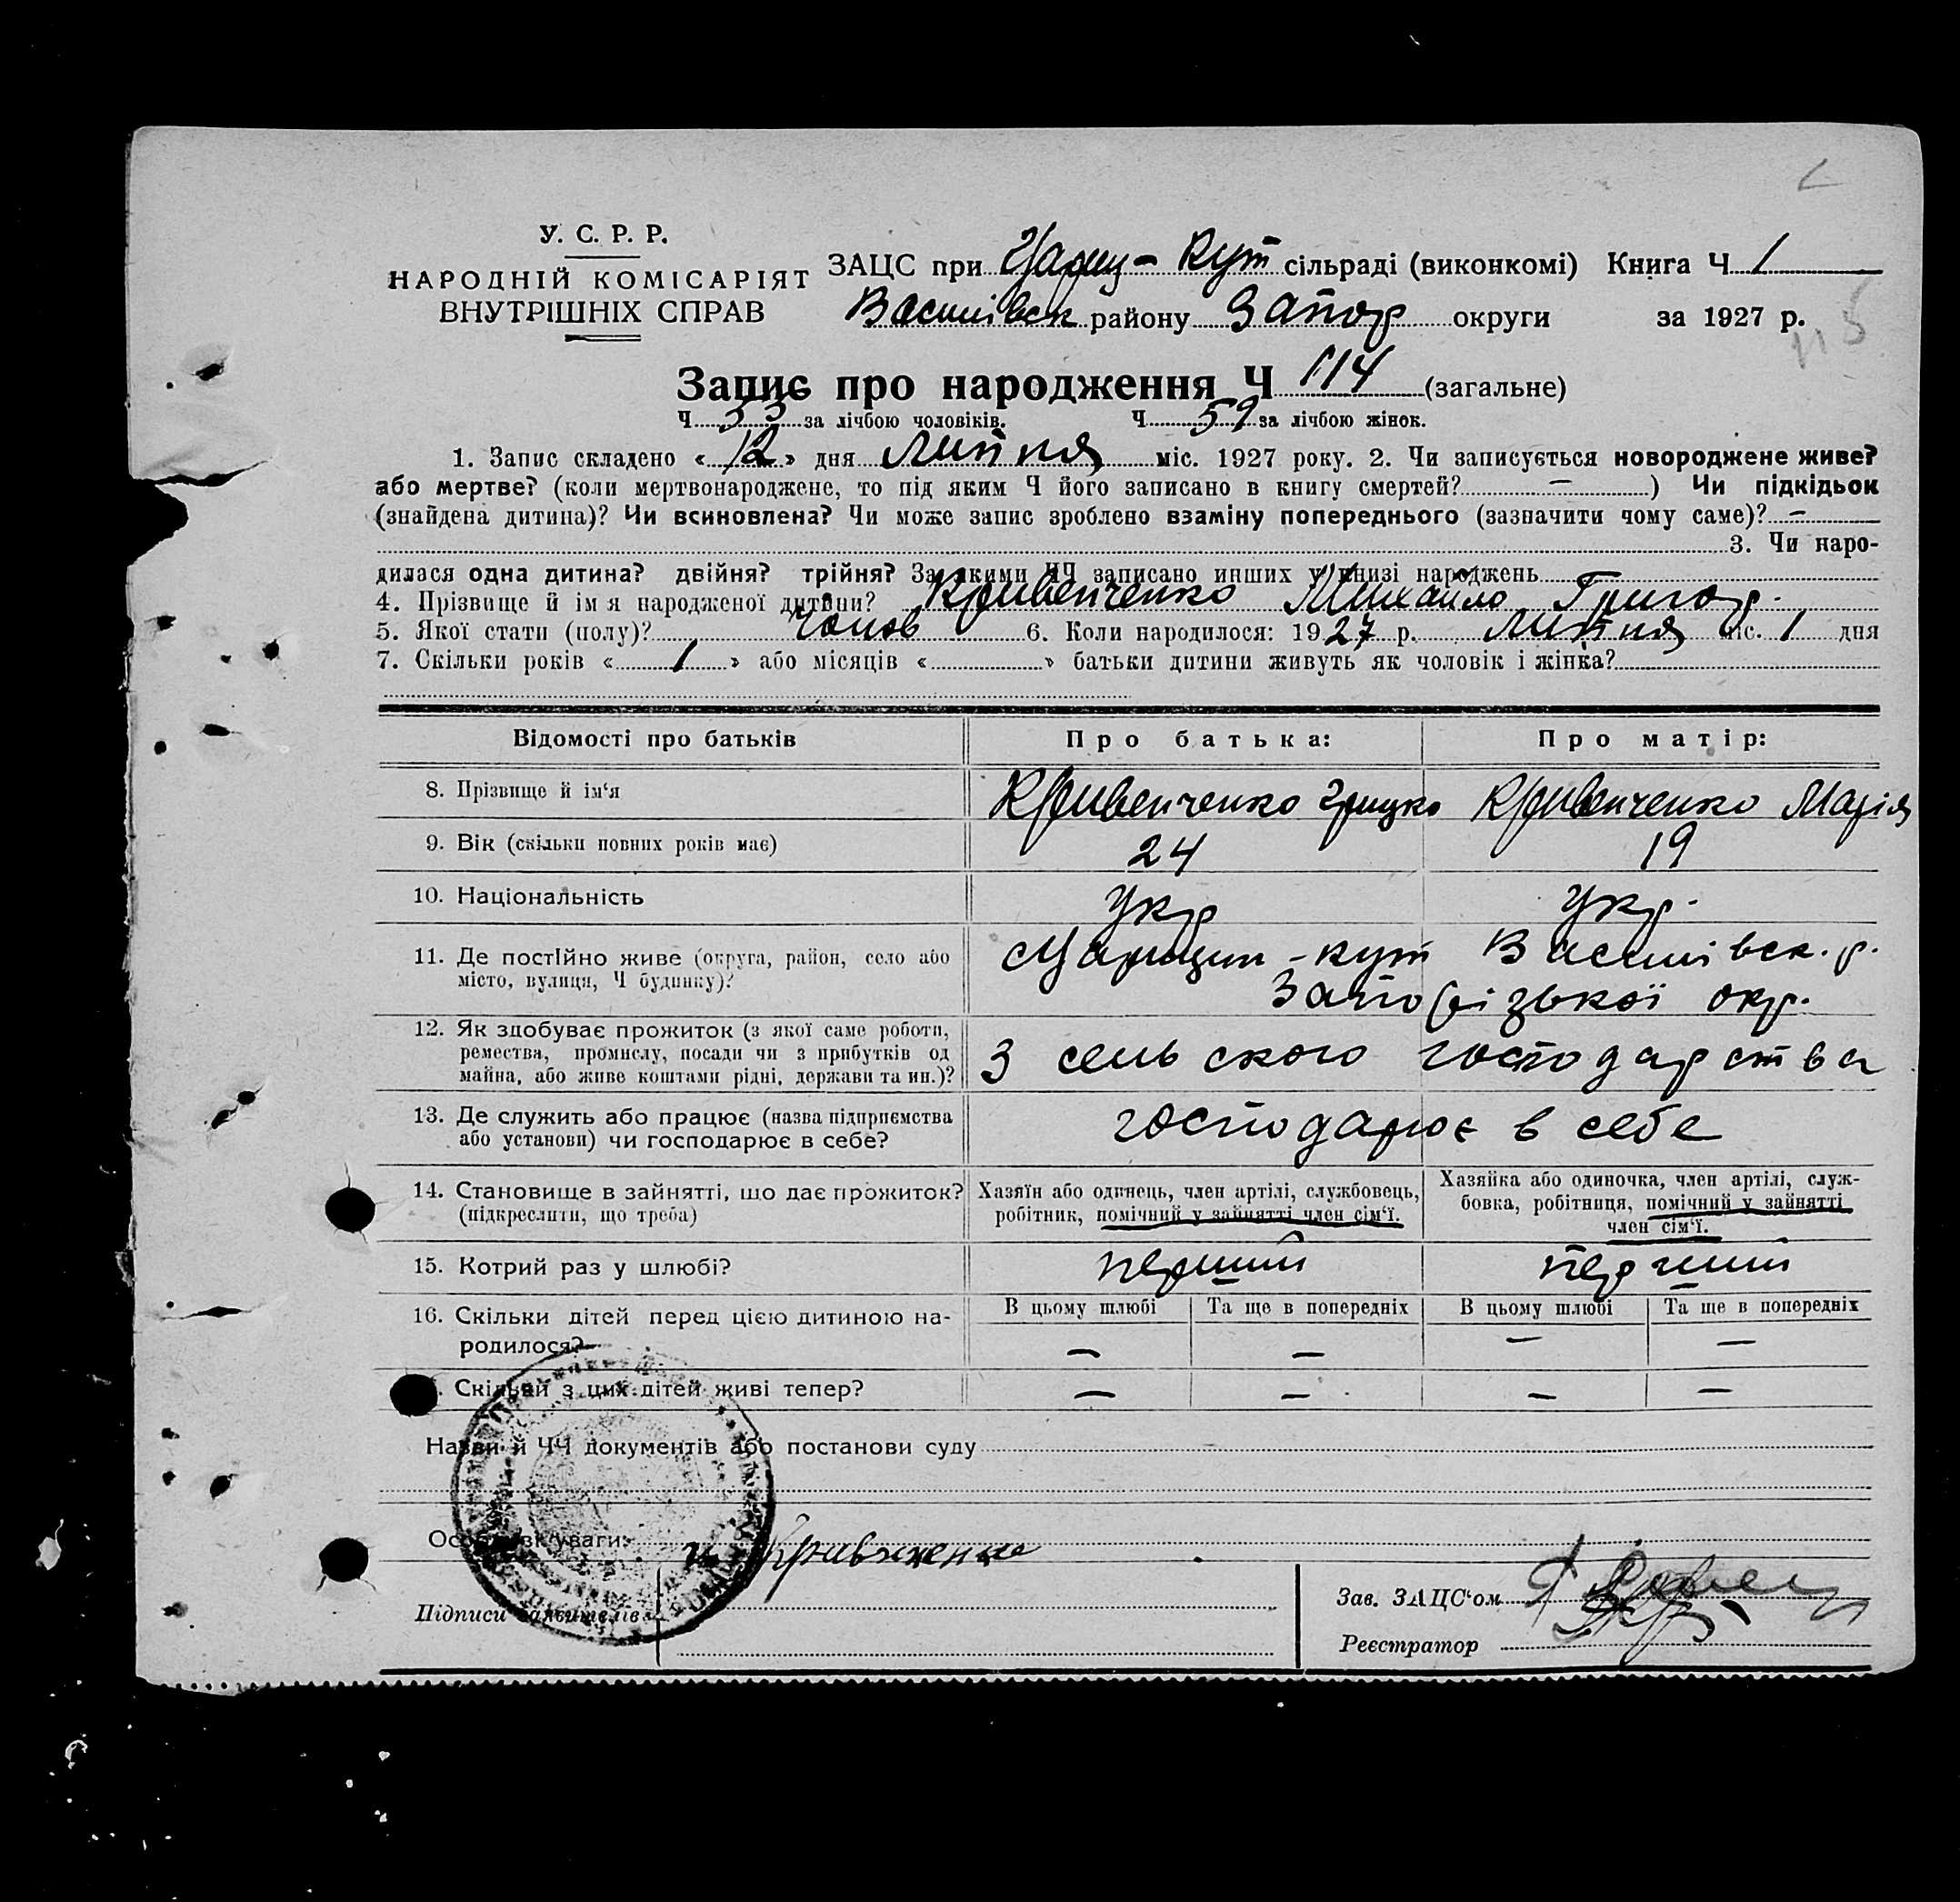 У. С. Р. Р.
НАРОДНІЙ КОМІСАРІЯТ
ВНУТРІШНІХ СПРАВ
ЗАЦС при Цариц - Кут сільраді (виконкомі) Книга Ч 1
Василівск району Запор округи за 1927 р.
115
Запис про народження Ч 114 (загальне)
Ч за лічбою чоловіків. Ч 59 за лічбою жінок.
1. Запис складено « 12 » дня Липня міс. 1927 року. 2. Чи записується новороджене живе?
або мертве? (коли мертвонароджене, то під яким Ч його записано в книгу смертей? — ) Чи підкідьок
(знайдена дитина)? Чи всиновлена? Чи може запис зроблено взаміну попереднього (зазначити чому саме)? —
3. Чи наро-
дилася одна дитина? двійня? трійня? За якими ЧЧ записано инших у книзі народжень
4. Прізвище й ім я народженої дитини? Кривенченко Михайло Григор.
5. Якої стати (полу)? чолов 6. Коли народилося: 1927 р. липня міс. 1 дня
7. Скільки років « 1 » або місяців « » батьки дитини живуть як чоловік і жінка?
Відомості про батьків Про батька: Про матір:
8. Прізвище й ім‘я Кривенченко Грицко Кривенченко Марія
9. Вік (скільки повних років має) 24 19
10. Національність Укр Укр.
11. Де постійно живе (округа, район, село або
місто, вулиця, Ч будинку)? Царицин - кут Василівск. р.
Запорізької окр.
12. Як здобуває прожиток (з якої саме роботи,
ремества, промислу, посади чи з прибутків од
майна, або живе коштами рідні, держави та ин.)? З сельского господарства
13. Де служить або працює (назва підприємства
або установи) чи господарює в себе? господарює в себе
14. Становище в зайнятті, що дає прожиток?
(підкреслити, що треба)
Хазяїн або одинець, член артілі, службовець,
робітник, помічний у зайнятті член сім‘ї.
Хазяйка або одиночка, член артілі, служ-
бовка, робітниця, помічний у зайнятті
член сім‘ї.
15. Котрий раз у шлюбі? перший перший
В цьому шлюбі Та ще в попередніх В цьому шлюбі Та ще в попередніх
16. Скільки дітей перед цією дитиною на-
родилося? — — — —
Скільки з цих дітей живі тепер? — — — —
Назви й ЧЧ документів або постанови суду
Особливі уваги:
Підписи заявителів
Зав. ЗАЦС‘ом
Реєстратор